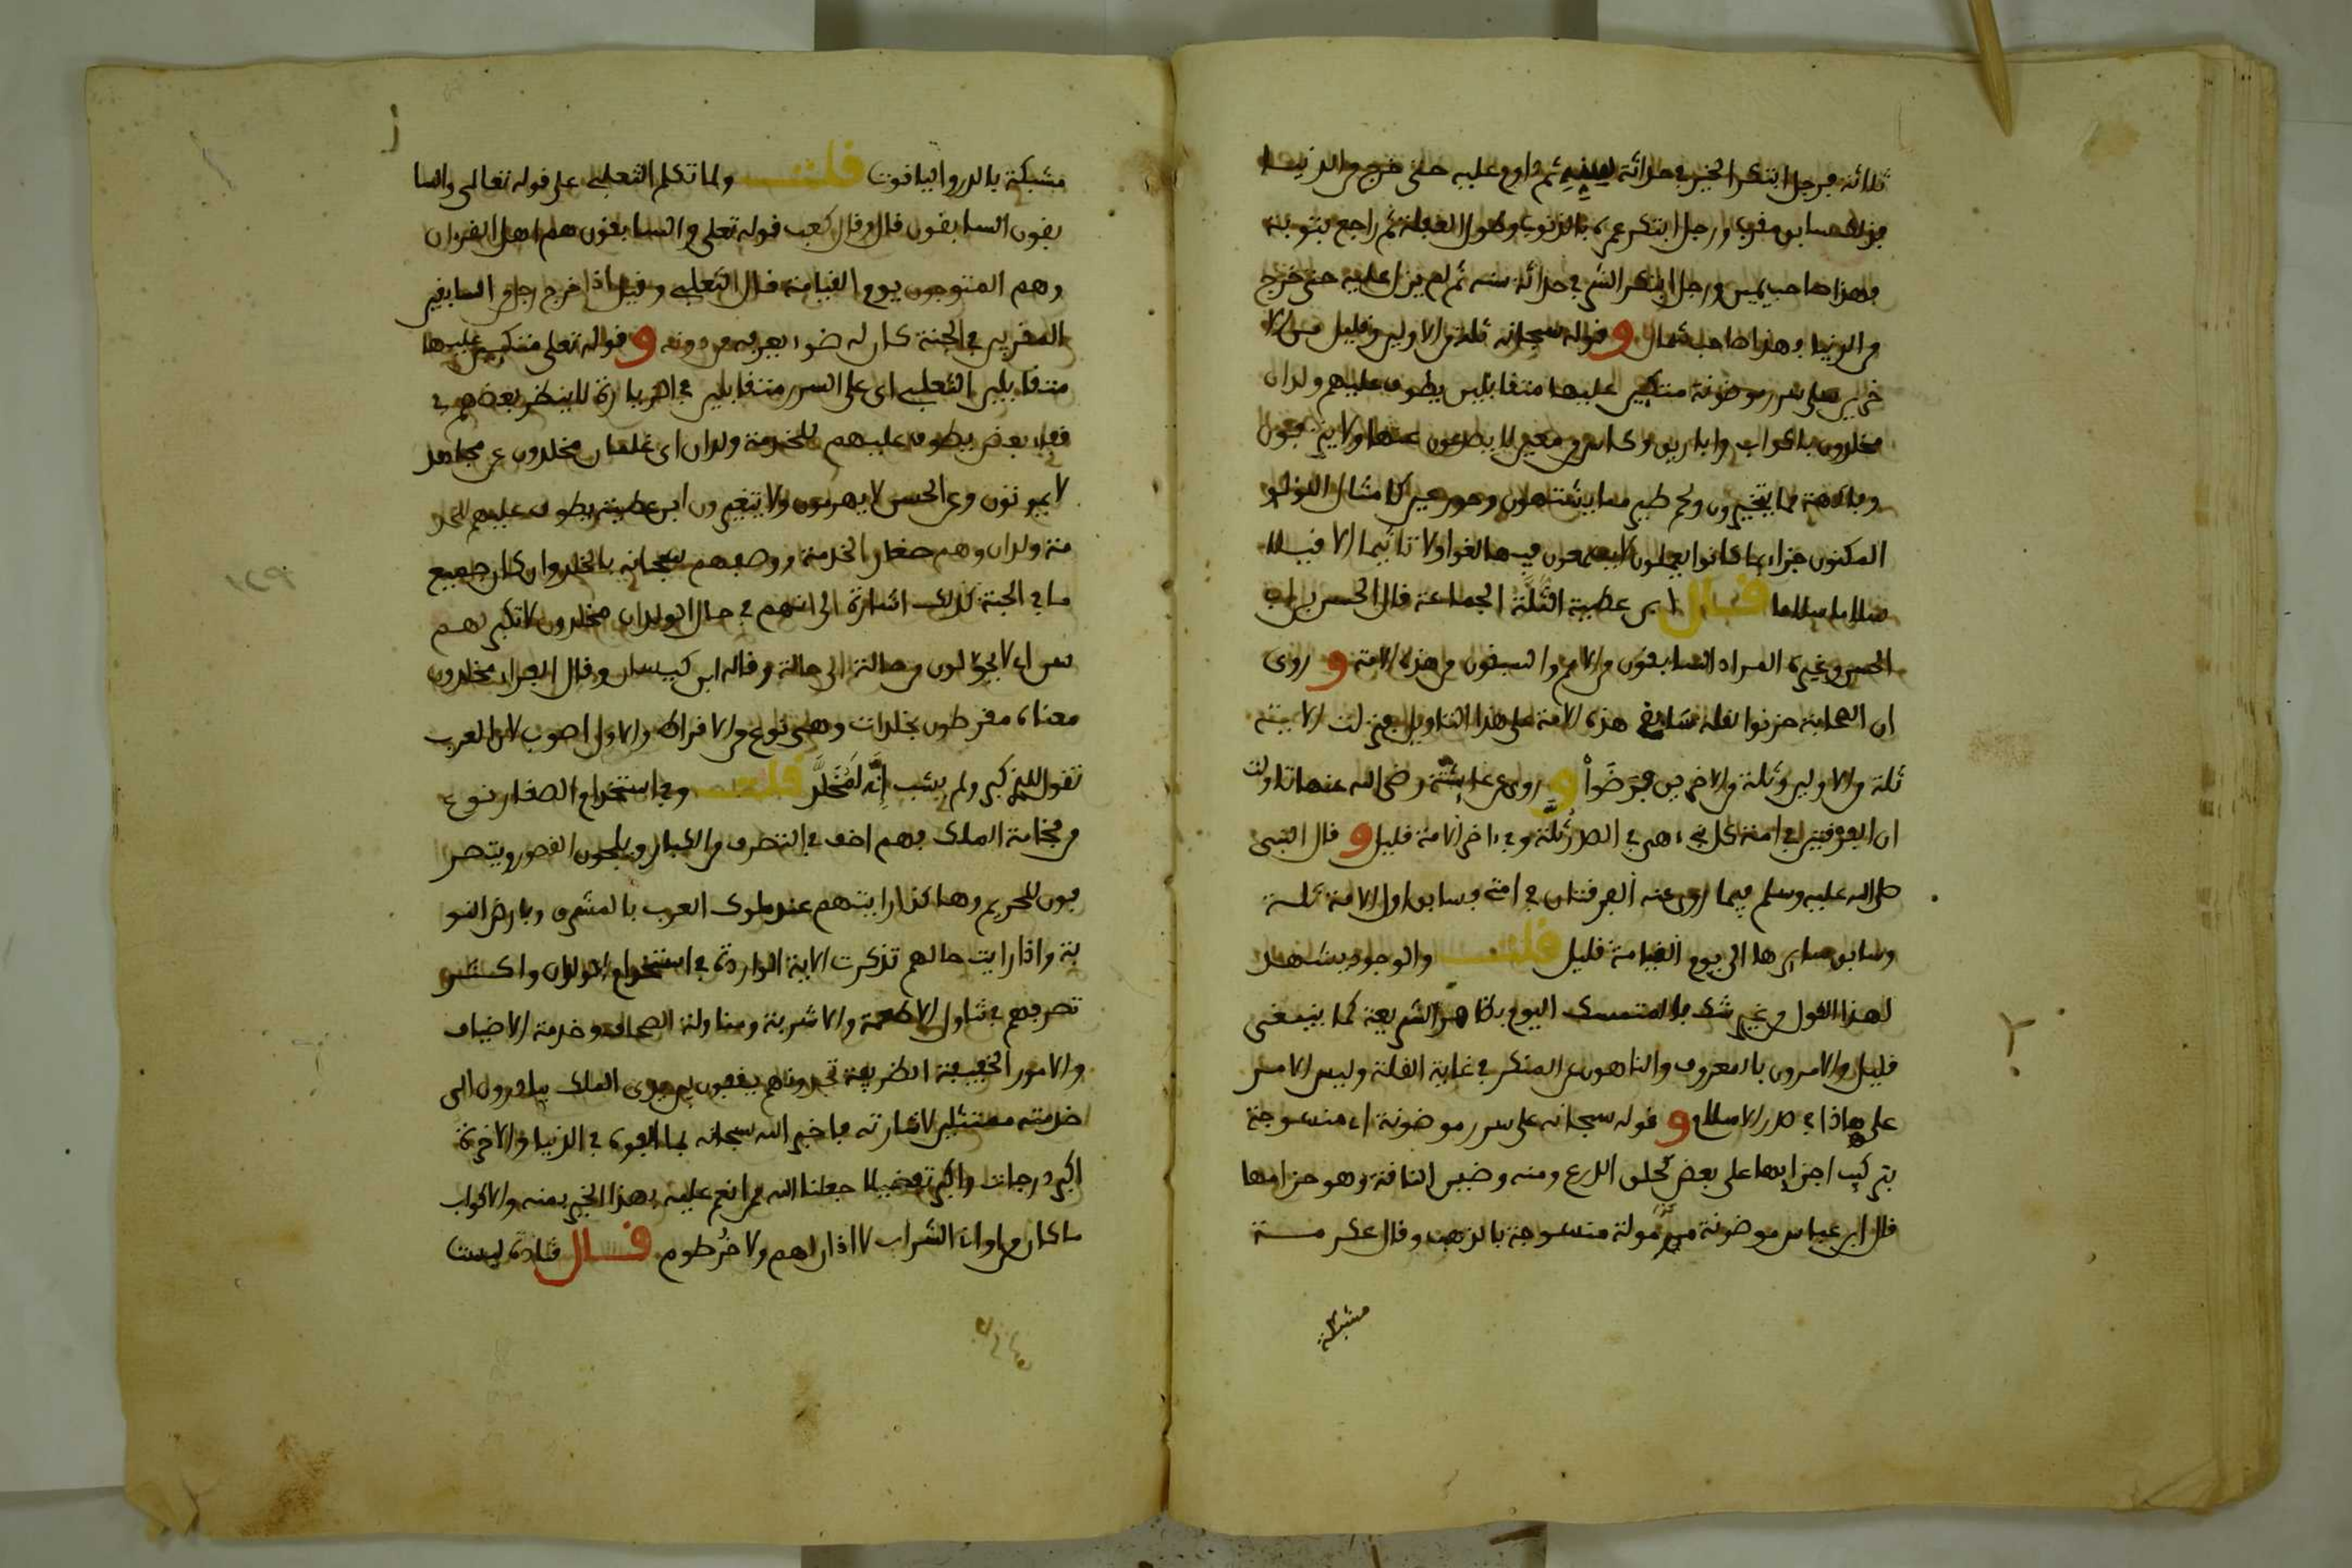 ثلاثة فرجل ابتكر الخير في حداثة سنه ثم داوم عليه حتى خرج من الدنيا
فهذا سابق مقرب ورجل ابتكر عمره بالذنوب وطول الغفلة ثم راجع بتوبته
فهذا صاحب يمين ورجل ابتكر الشر في حداثة سنه ثم لم يزل عليه حتى خرج
من الدنيا وهذا صاحب شمال وقوله سبحانه ثلة من الاولين وقليل من الا
خرين على سرر موضونة متكئين عليها متقابلين يطوف عليهم ولدان
مخلدون باكواب واباريق وكاس من معين لا يصدعون عنها ولا ينزفون
وفاكهة مما يتخيرون ولحم طير مما يشتهون وحور عين كامثال اللؤلؤ
المكنون جزاء بما كانوا يعملون لا يسمعون فيها لغوا ولا تاثيما الا قيلا
سلاما سلاما قال ابن عطية الثلة الجماعة قال الحسن بن ابي
الحسن وغيره المراد السابقون من الامم والسبقون من هذه الامة وروى
ان الصحابة حزنوا لقلة سابق هذه الامة على هذا التاويل فنزلت الاية
ثلة من الاولين وثلة من الاخرين فرضوا وروى عن عائشة رضي الله عنها تاولت
ان الفرقتين في امة كل نبي هي في الصدر ثلة وفي اخر الامة قليل وقال النبي
صلى الله عليه وسلم فيما روى عنه الفرقتان في امتي فسابق اول الامة ثلة
وسابق سايرها الى يوم القيامة قليل قلت والوجود يشهد
لهذا القول من غير شك فالمتمسك اليوم بظاهر الشريعة كما ينبغي
قليل والامرون بالمعروف والناهون عن المنكر في غاية القلة وليس الامر
على هاذا في صدر الاسلام وقوله سبحانه على سرر موضونة اي منسوجة
بتركيب اجزايها على بعض كحلق الدرع ومنه وضين الناقة وهو حزامها
قال ابن عباس موضونة مرمولة منسوجة بالذهب وقال عكرمة
مشبكة
مشبكة بالدر والياقوت قلت ولما تكلم الثعلبي على قوله تعالى والسا
بقون السابقون قال وقال كعب قوله تعلى والسابقون هم اهل القرءان
وهم المتوجون يوم القيامة قال الثعلبي وقيل اذا خرج رجل من السابقين
المقربين في الجنة كان له ضوء يعرفه من دونه وقوله تعلى متكئين عليها
متقابلين الثعلبي اي على السرر متقابلين في الزيارة لا ينظر بعضهم في
قفا بعض يطوف عليهم للخدمة ولدان اي غلمان مخلدون عن مجاهد
لا يموتون وعن الحسن لا يهرمون ولا يتغيرون ابن عطية يطوف عليهم للخد
مة ولدان وهم صغار الخدمة ووصفهم سبحانه بالخلد وان كان جميع
ما في الجنة كذلك اشارة الى انهم في حال الولدان مخلدون لا تكبر لهم
سن اي لا يحولون من حالة الى حالة وقاله ابن كيسان وقال الفراء مخلدون
معناه مقرطون بخلدات وهي نوع من الاقراط والاول اصوب لان العرب
تقول للذي كبر ولم يشب انه لمخلد قلت وفي استخدام الصغار نوع
من فخامة الملك فهم اخف في التصرف من الكبار ويلجون القصور ويتصر
فون للحريم وهاكذا رايتهم عند ملوك العرب بالمشرق وبارض النو
بة واذا رايت حالهم تذكرت الاية الواردة في استخدام الولدان واكثر
تصرفهم في تناول الاطعمة والاشربة ومناولة الصحاف وخدمة الاضياف
والامور الخفيفة الظريفة تجدونهم يقفون بين يدي الملك يبادرون الى
خدمته ممتثلين لاشارته فاخبر الله سبحانه بما القوم في الدنيا والاخرة
اكبر درجات واكبر تفضيلا جعلنا الله ممن انعم عليه بهذا الخير بمنه والاكواب
ما كان من اواني الشراب لا اذان لهم ولا خرطوم قال قتادة ليست